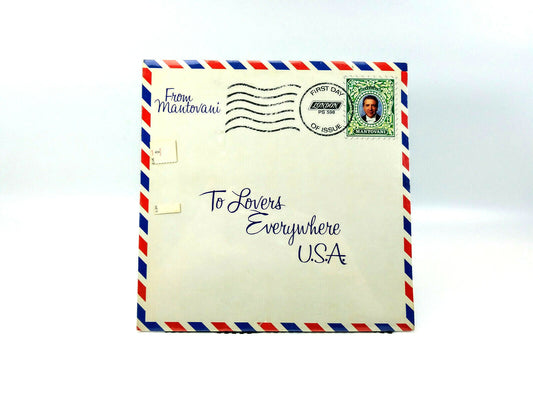 From
Mantovani
FIRST DAY
LONDON
PS 598
OF ISSUE
MANTOVANI
To Lovers
Everywhere
U.S.A.